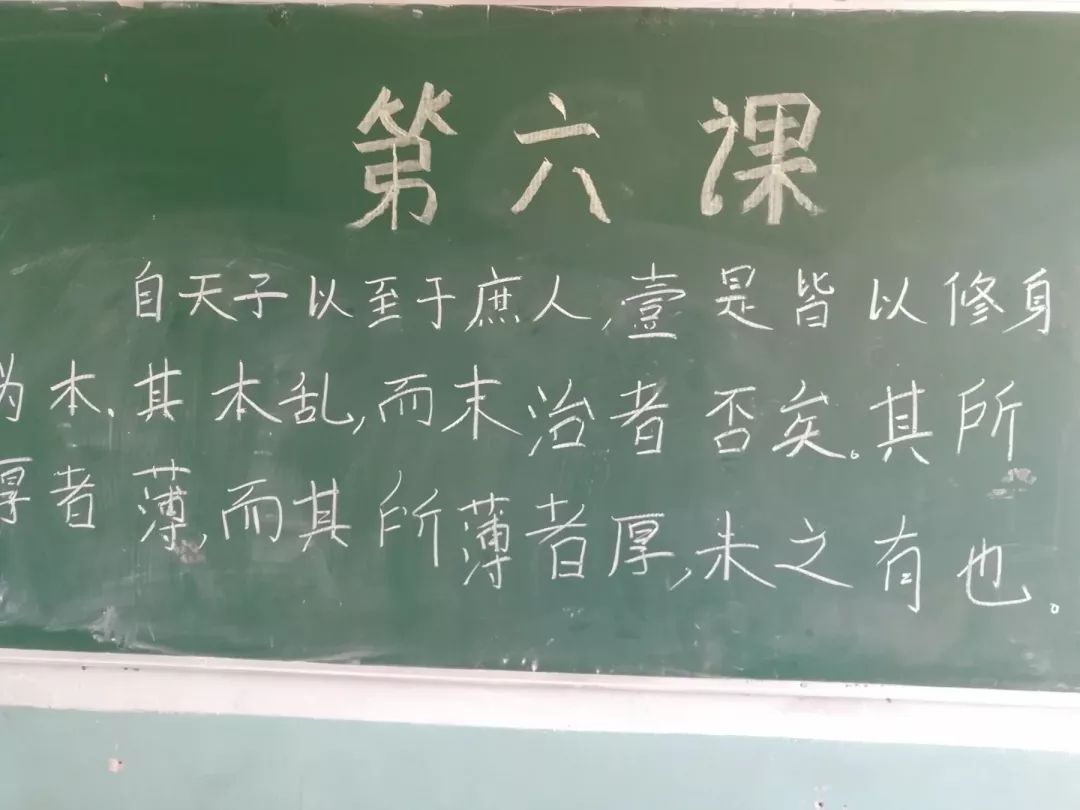 第六课
自天子以至于庶人,壹是皆以修身
为本.其本乱,而末治者否矣。其所
厚者薄,而其所薄者厚,未之有也。